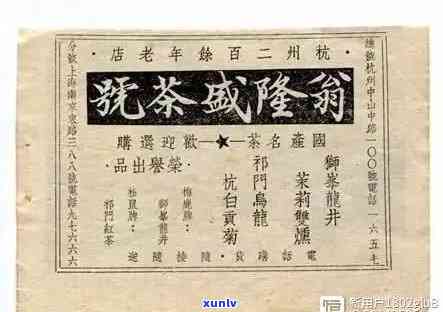 總號杭州中山中路一〇〇號電話一六五七
杭州二百餘年老店
翁隆盛茶號
國產名茶—★—歡迎選購
獅峯龍井
茉莉雙燻
祁門烏龍
杭白貢菊
·榮譽出品·
梅鹿牌：
獅峯龍井
牌：
祁門紅茶
電話購貨·隨接隨送
分號上海南京東路三八八號電話九七六六六
xunlv
新用户1802elu8